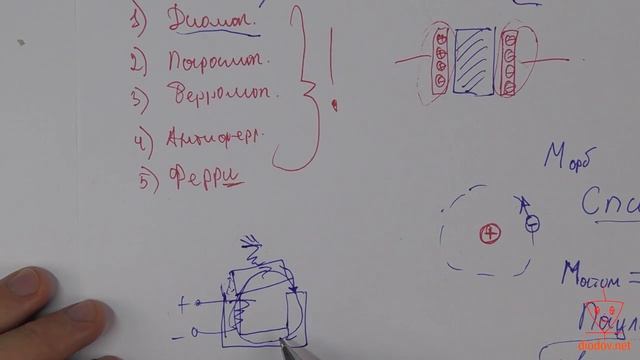 1) Диамаг.
2) Парамаг.
3) Ферромаг.
4) Антиферр.
5) Ферри
!
+
−
+
−
M орб
Спи
M атом =
Паул
diodov.net